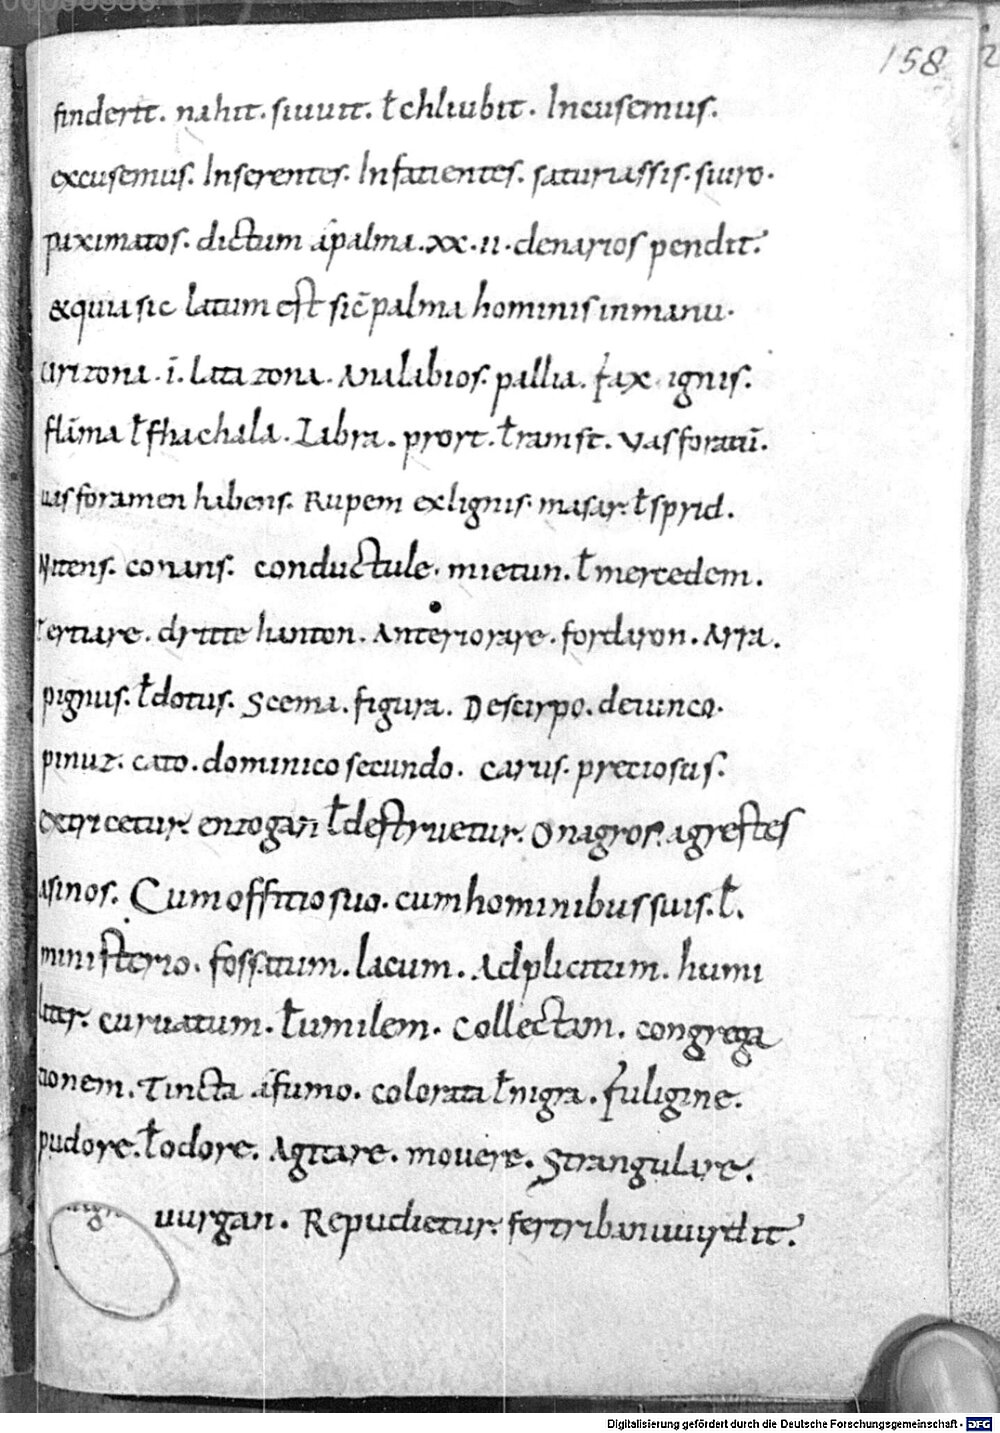 158
finderit. nahit. siuuit. ł chliubit. Incusemus.
excusemus. Inserentes. Infatientes. saturiassis. siuro.
paximatos. dictum a palma. xx. ii. denarios pendit.
& quia sic latum est sic palma hominis in manu.
zona. i. lata zona. Analabios. pallia. fax. ignis.
flāma ł fhachala. Labra. prort. ł ramft. Vas foratū.
uas foramen habens. Rupem ex lignis. masar. ł sprid.
Nitens. conans. conductule. mietun. ł mercedem.
Tertiare. dritte hanton. Anteriorare. fordaron. Arra.
pignus. ł dotus. Scema. figura. De scirpo. de iunco.
pinuz. cato. dominico secundo. carus. preciosus.
extricetur. enzogan ł destruetur. Onagros. agrestes
asinos. Cum offitio suo. cum hominibus suis. ł.
ministerio. fossatum. lacum. Adplicitum. humi
liter. curuatum. ł umilem. Collectam. congrega
tionem. Tincta a fumo. colorata ł nigra. fuligine.
pudore. ł odore. Agitare. mouere. Strangulare.
uurgan. Repudietur. fertriban uuirdit.
Digitalisierung gefördert durch die Deutsche Forschungsgemeinschaft - DFG